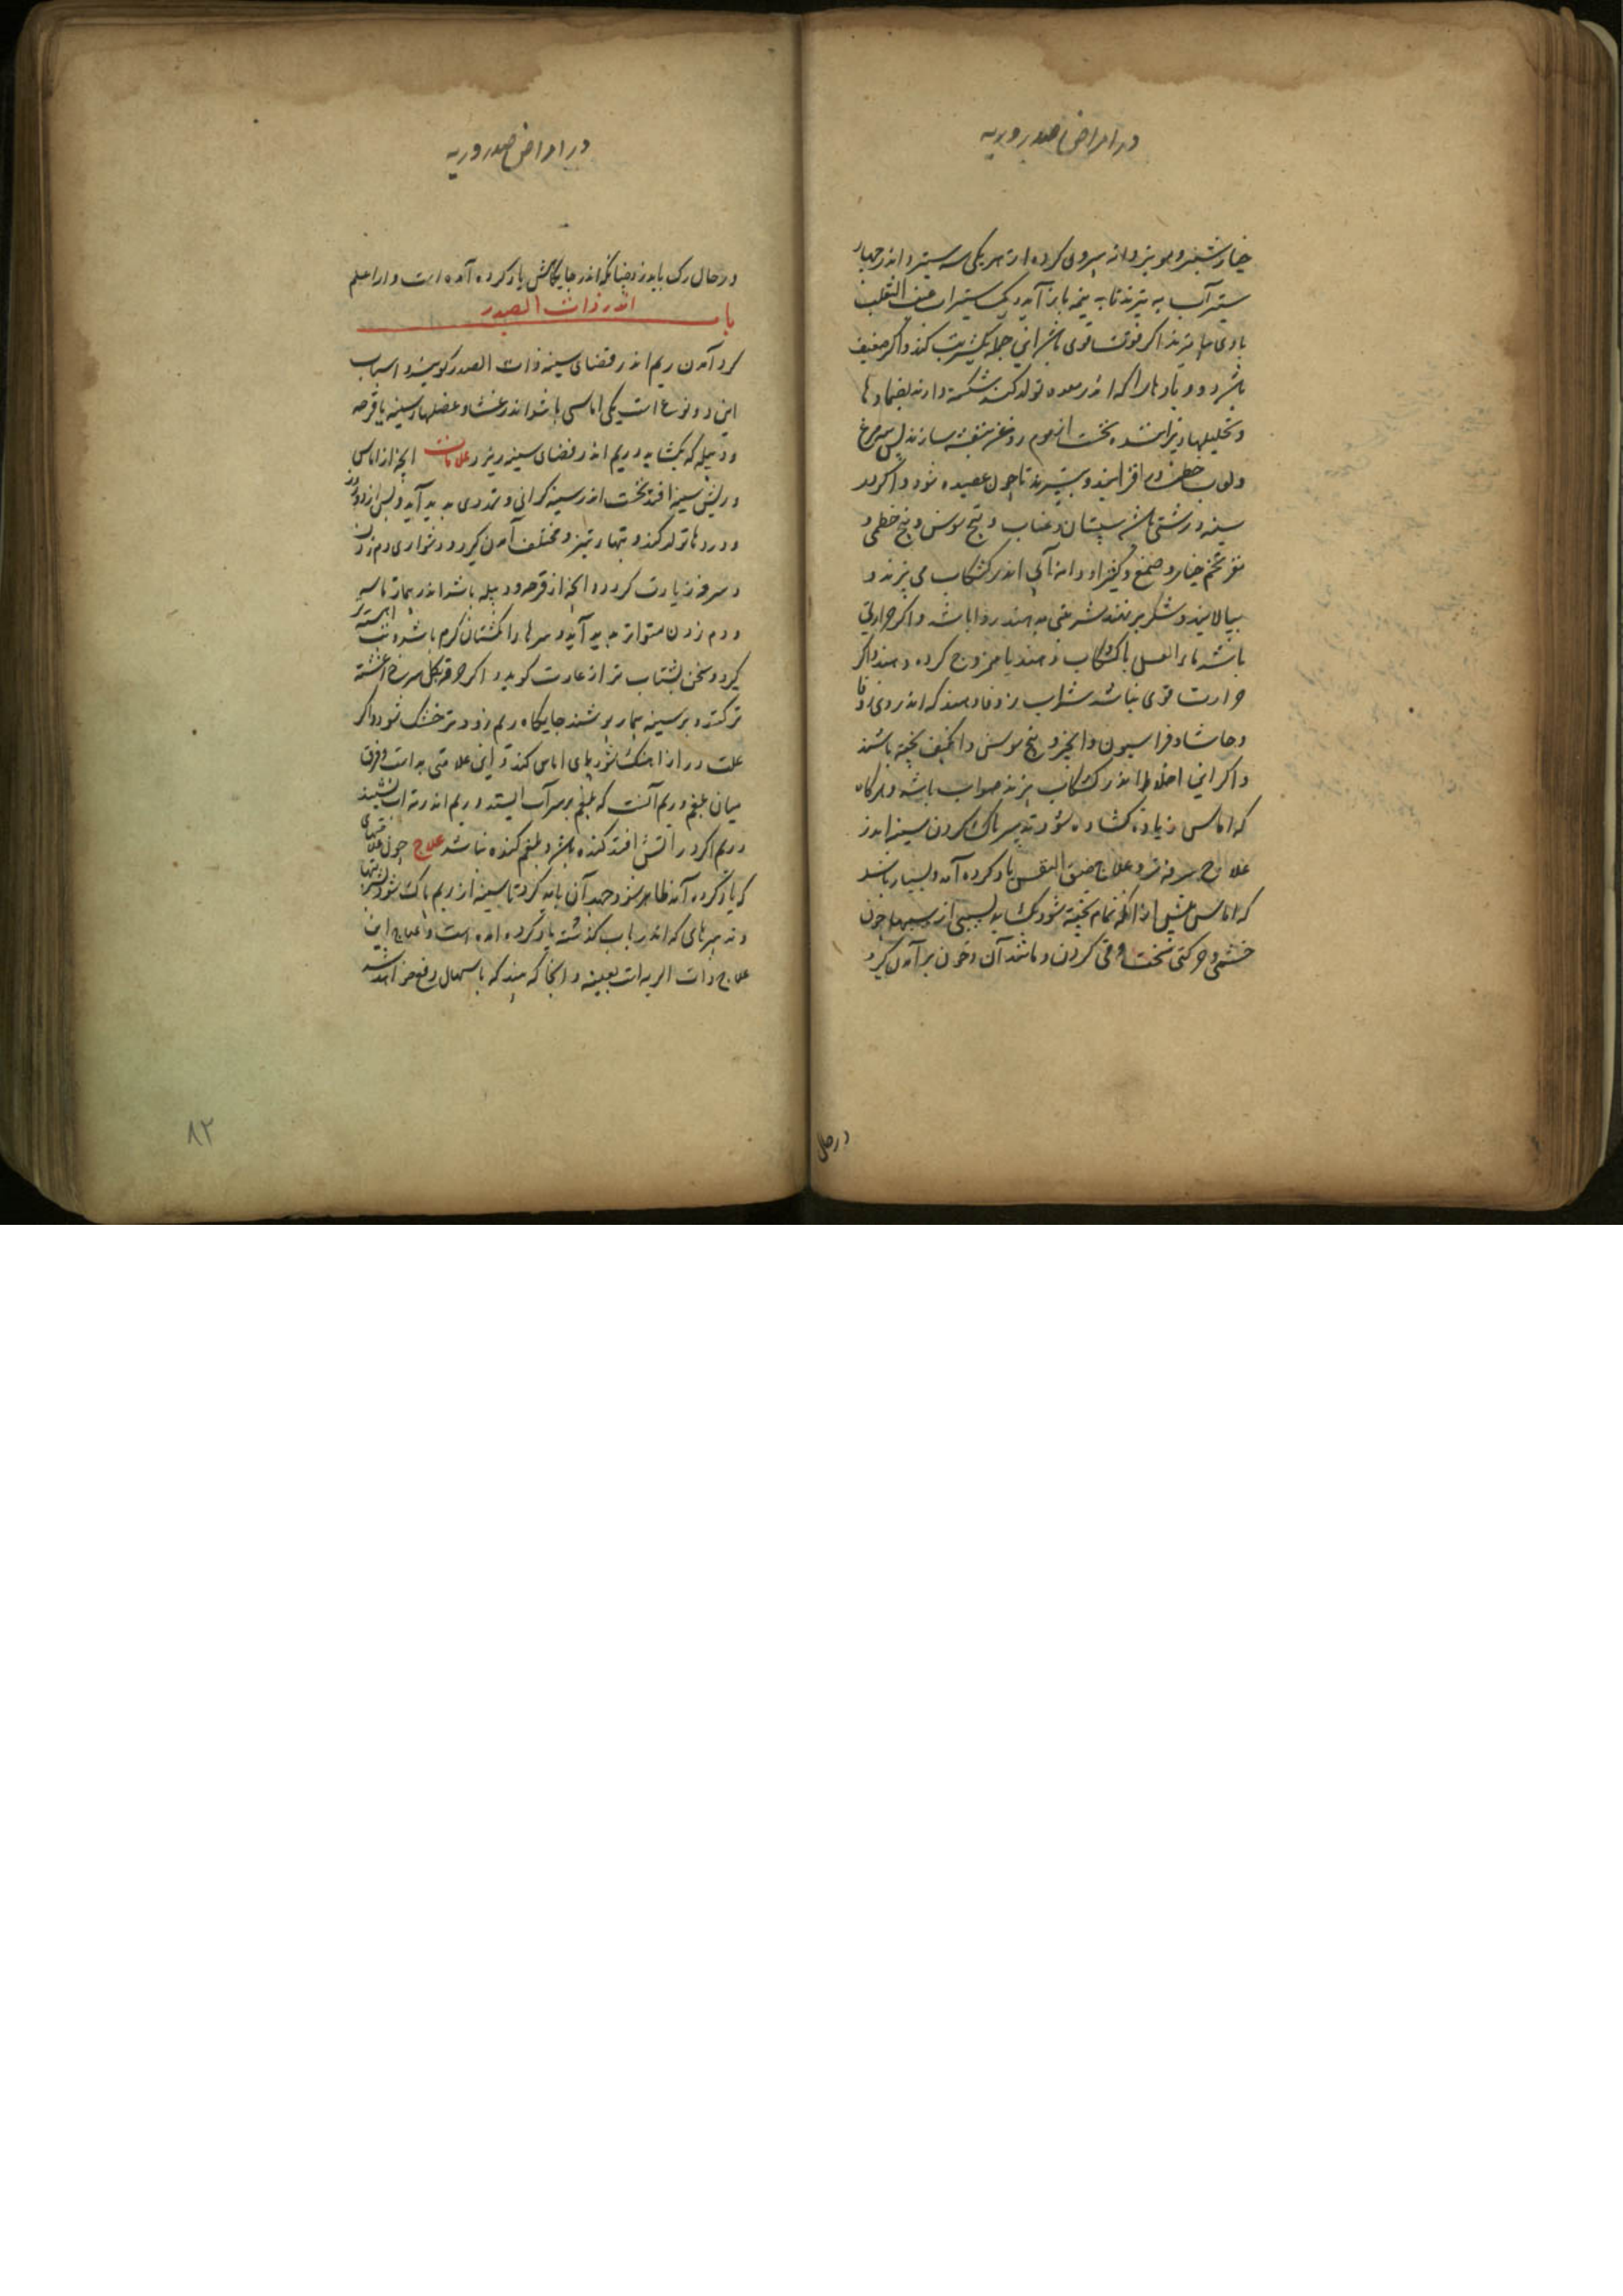 در امراض صدر و ریه
خیارشنبر و مویز دانه بیرون کرده از هر یکی سه ستیر اندر چهار
ستیر آب بپزند تا به نیمه باز آید و یک ستیر آب عنب الثعلب
با وی بپزند اگر قوت قوی باشد این جمله یک شربت کند و اگر ضعیف
باشد دو و بادها را که اندر معده تولد کند شکسته دارند بضمادها
و تحلیلها و نخست از موم روغن بنفشه سازند پس پیه مرغ
و لعاب خطمی در افزایند و بسیرند تا چون عصیده شود و اگر در
سینه درشتی باشد سپستان و عناب و بیخ سوسن و بیخ خطمی و
مغز تخم خیار و صمغ و کتیرا و دانه آبی اندر کشکاب می پزند و
بپالایند و شکر بر نهند شربتی بدهند روا باشد و اگر حرارتی
باشد ماء العسل با کشکاب دهند یا ممزوج کرده دهند و اگر
حرارت قوی نباشد شراب زوفا دهند که اندر وی زوفا
و حاشا و فراسیون و انجیر و بیخ سوسن و انگبین پخته باشند
و اگر این اخلاط اندر کشکاب پزند صواب باشد و هرگاه
که اماس زیاده گشاده شود تدبیر پاک کردن سینه اندر
علاج سرفه تر و علاج ضیق النفس یاد کرده آمد و بسیار باشد
که اماس پیش از آنکه تمام پخته شود بگشاید بسببی از سببها چون
خشمی و حرکتی سخت و قی کردن و مانند آن و خون برآمدن گیرد
در حال
در امراض صدر و ریه
در حال رک باید زد چنانکه اندر جایگاهش یاد کرده آمده است و الله اعلم
باب اندر ذات الصدر
گرد آمدن ریم اندر فضای سینه ذات الصدر گویند و اسباب
این دو نوع است یکی اماسی باشد اندر غشا و عضلهاء سینه یا قرحه
و دبیله که بگشاید و ریم اندر فضای سینه ریزد علامات آنچه از اماس
و ریش سینه افتد نخست اندر سینه گرانی و تمددی پدید آید و پس از
و دردها تولد کند و تبهاء تیز و مختلف آمدن گیرد و دشواری دم زدن
و سرفه زیادت گردد و آنچه از قرحه و دبیله باشد اندر بیمار تاسه
و دم زدن متواتر پدید آید و سرها انگشتان گرم باشد و تب آهسته تر
گیرد و سخن بشتاب تر از عادت گوید و اگر خرقه بگل سرخ آغشته
تر کنند و بر سینه بیمار پوشند جایگاه ریم زودتر خشک شود و اگر
علت دراز اهنگ شود پای اماس کند و این علامتی بد است و فرق
میان بلغم و ریم آنست که بلغم بر سر آب ایستد و ریم اندر ته آب نشیند
و ریم اگر در آتش افتد گنده باشد و بلغم گنده نباشد علاج چون علامتهای
که یاد کرده آمد ظاهر شود جهد آن باید کرد تا سینه از ریم پاک شود بشربتها
و تدبیرهای که اندر باب گذشته یاد کرده آمده است و علاج این
علاج ذات الریه است بعینه و آنجا که بیند که باسهال دفع خواهد شد
۸۲